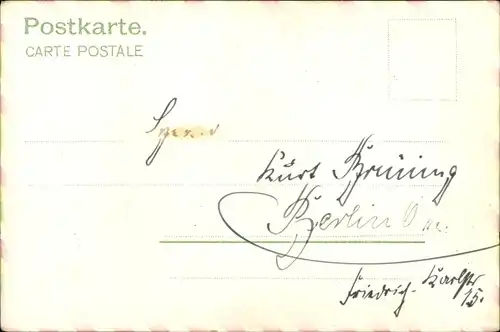 Postkarte.
CARTE POSTALE
Kurt Brüning
Berlin
Friedrich-Karlstr
15.